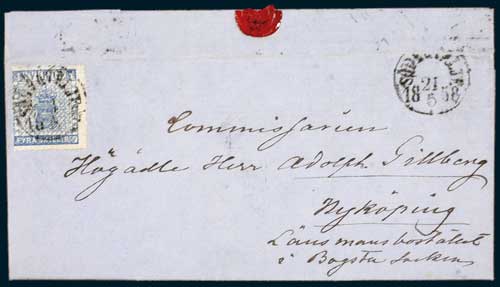 SÖDERTELJE
21
18 58
5
FYRA
Commissarien
Högädle Herr Adolph Gillberg
Nyköping
Länsmansbostället
i Bogsta Socken